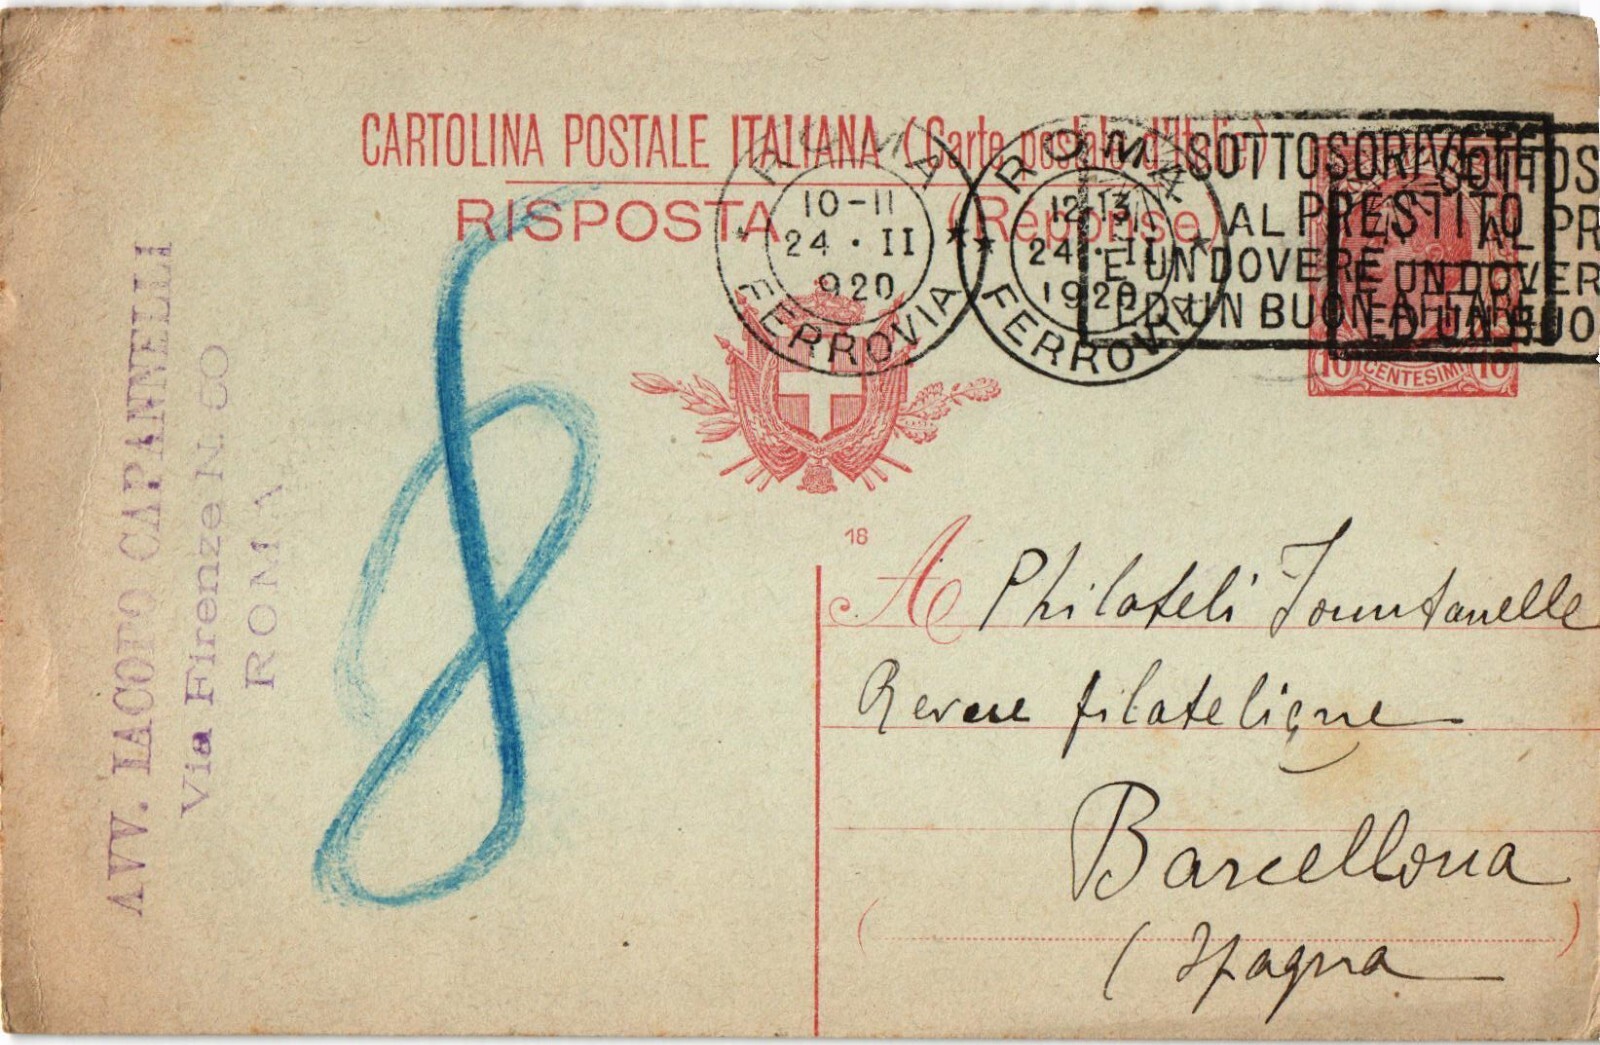 CARTOLINA POSTALE ITALIANA (Carte postale d'Italie)
RISPOSTA (Réponse)
ROMA
10-11
24 · II
920
FERROVIA
ROMA
12-13
24 · II
1920
FERROVIA
SOTTOSCRIVETE
AL PRESTITO
E UN DOVERE
ED UN BUON AFFARE
SOTTOS
AL PR
E UN DOVER
ED UN BUO
10 CENTESIMI 10
AVV. IACOPO CAPANNELLI
Via Firenze N.
ROMA
8
18
A Philateli Fountanelle
Revue filatelique
Barcellona
(Spagna